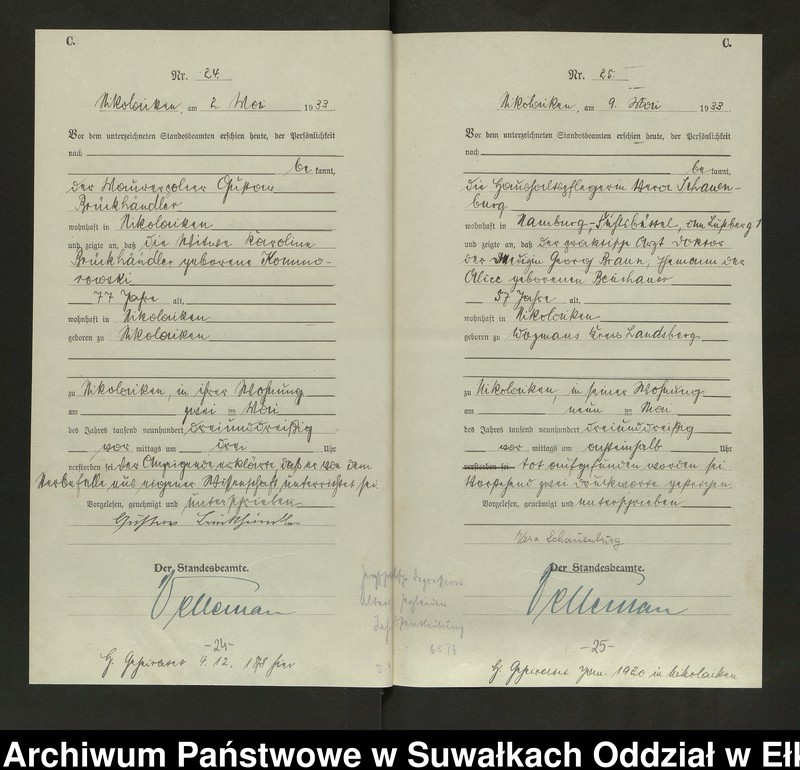 C.
Nr. 24.
Nikolaiken, am 2. Mai 1933.
Vor dem unterzeichneten Standesbeamten erschien heute, der Persönlichkeit
nach
be kannt,
der Maurerpolier Gustav
Brückhändler
wohnhaft in Nikolaiken
und zeigte an, daß die Witwe Karoline
Brückhändler geborene Kommo-
rowski
77 Jahre alt,
wohnhaft in Nikolaiken
geboren zu Nikolaiken
zu Nikolaiken, in ihrer Wohnung
am zwei ten Mai
des Jahres tausend neunhundert dreiunddreißig
vor mittags um drei Uhr
verstorben sei. Der Anzeigende erklärte, daß er von dem
Sterbefalle aus eigener Wissenschaft unterrichtet sei.
Vorgelesen, genehmigt und unterschrieben
Gustav Brückhändler
Der Standesbeamte.
-24-
Geheiratet 9. 12. hier
C.
Nr. 25.
Nikolaiken, am 9. Mai 1933.
Vor dem unterzeichneten Standesbeamten erschien heute, der Persönlichkeit
nach
be kannt,
die Haushaltspflegerin Vera Schauen-
burg
wohnhaft in Hamburg-Fuhlsbüttel,
und zeigte an, daß der praktische Arzt Doktor
der Medizin Georg Braun, Ehemann der
Alice geborenen
57 Jahre alt,
wohnhaft in Nikolaiken
geboren zu Kreis Landsberg
zu Nikolaiken, in seiner Wohnung
am neun ten Mai
des Jahres tausend neunhundert dreiunddreißig
vor mittags um achteinhalb Uhr
verstorben sei tot aufgefunden worden sei
Vorstehend zwei Druckworte gestrichen.
Vorgelesen, genehmigt und unterschrieben
Vera Schauenburg
Der Standesbeamte.
-25-
Geheiratet 1920 in Nikolaiken
Archiwum Państwowe w Suwałkach Oddział w Ełk